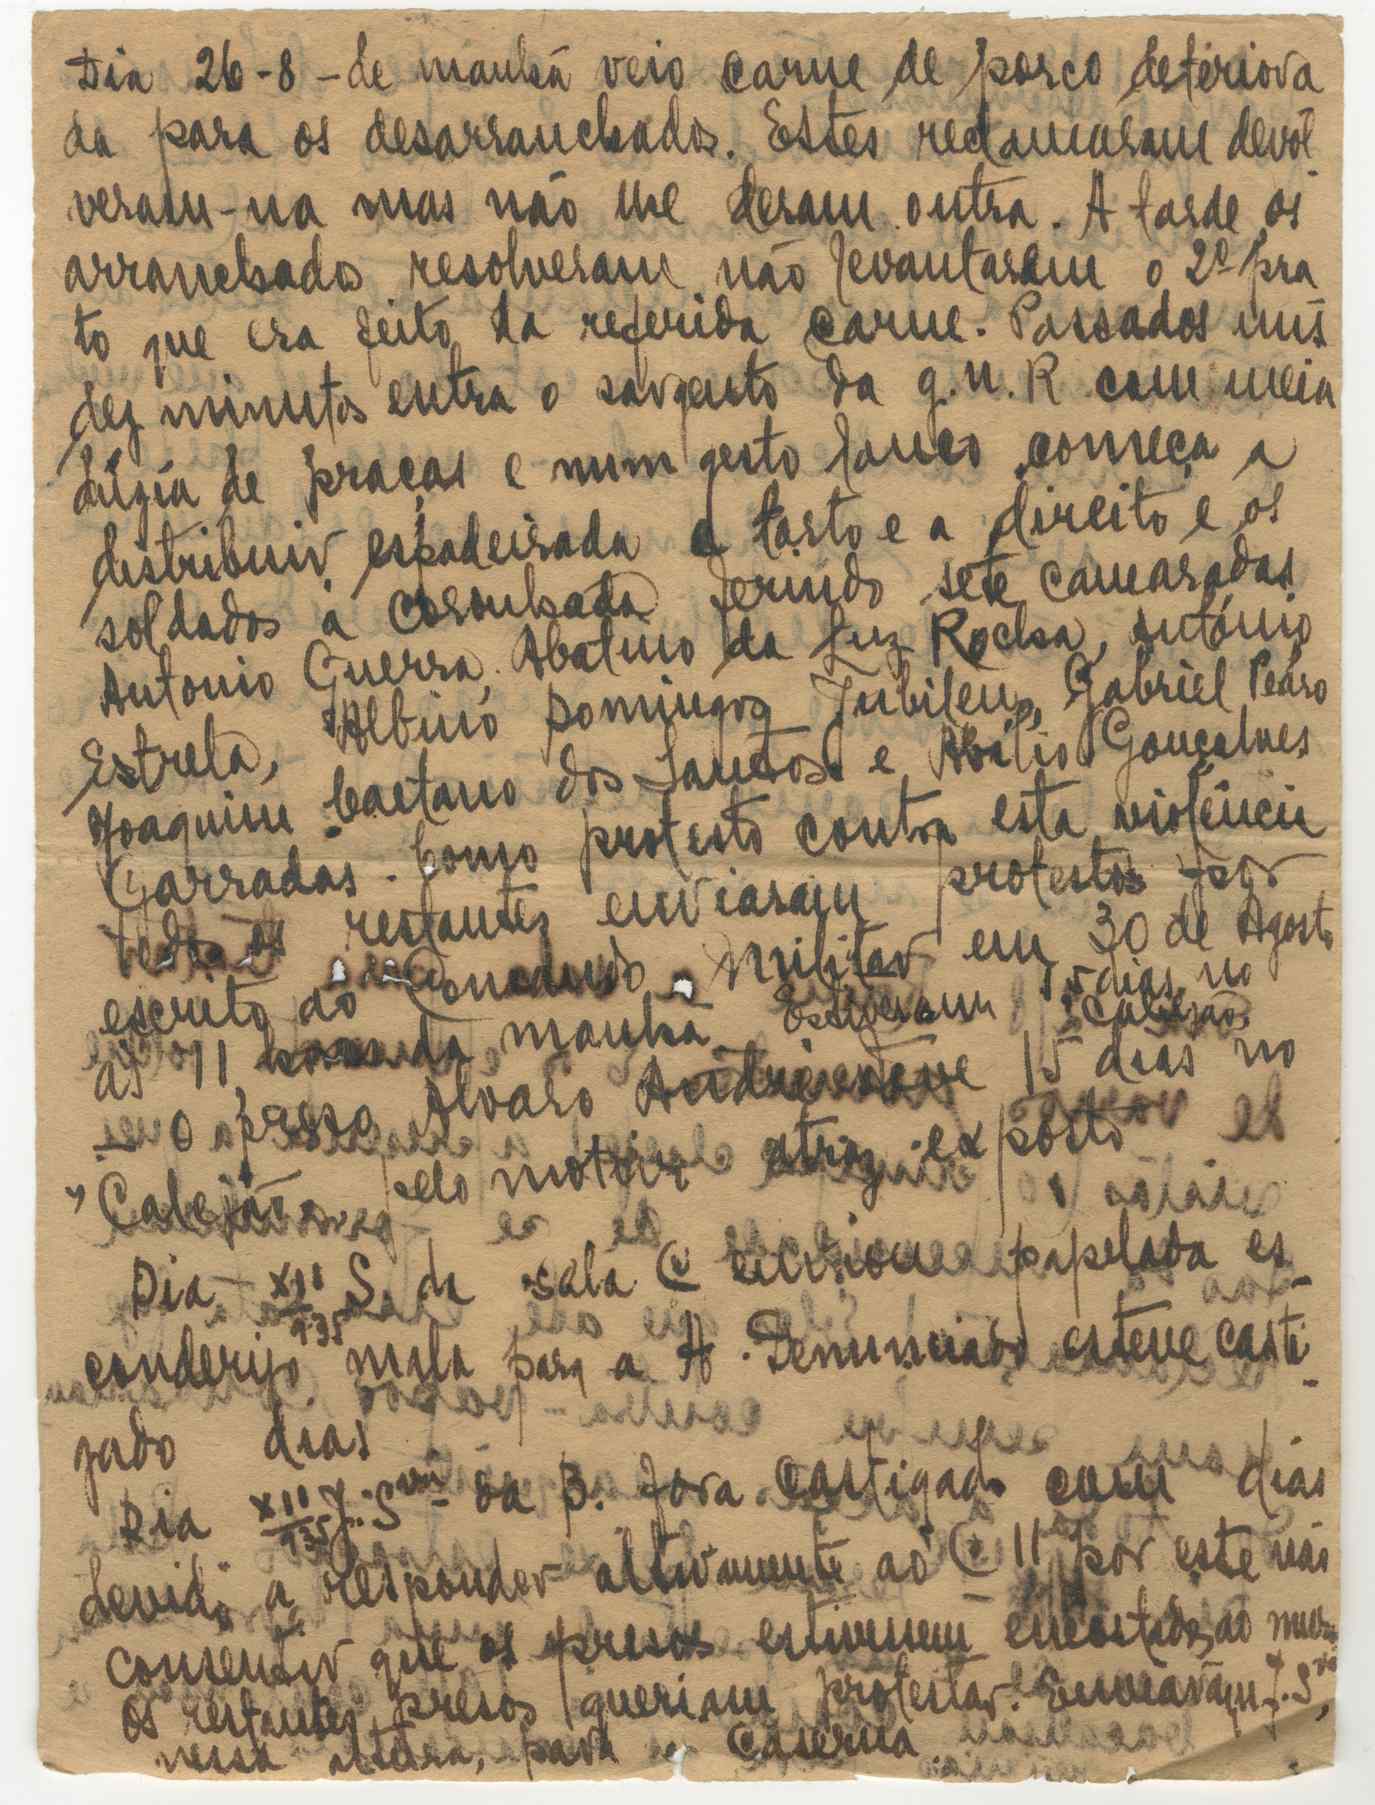 Dia 26-8 - de manhã veio carne de porco deteriora
da para os desarranchados. Estes reclamaram devol
veram-na mas não lhe deram outra. A tarde os
arranchados resolveram não levantarem o 2º pra
to que era feito da referida carne. Passados uns
dez minutos entra o sargento da g.n.R com meia
duzia de praças e num gesto louco começa a
distribuir espadeirada a torto e a direito e os
soldados á coronhada ferindo sete camaradas
Antonio Guerra, Abatino da Luz Rocha, António
Estrela, Albino Domingos Jubileu, Gabriel Pedro
Joaquim Caetano dos Santos e Abilio Gonçalves
Carradas. Como protesto contra esta violência
todos os restantes enviaram protestos por
escrito ao Comando Militar em 30 de Agosto
ás 11 horas da manhã. Estiveram 15 dias no
"Calejão"
- O preso Alvaro André esteve 15 dias no
"Calejão" pelo motivo atraz exposto
Dia XII/935 S. da sala C enviou papelada es
conderijo mala para a A. Denunciado esteve casti-
gado dias
Dia XII/935 J. S. da B. fora castigado com dias
devido a responder altivamente ao C 11 por este não
consentir que os presos estivessem encostados ao muro
Os restantes presos queriam protestar. Enviaram J. S.
nessa altura, para Caserna